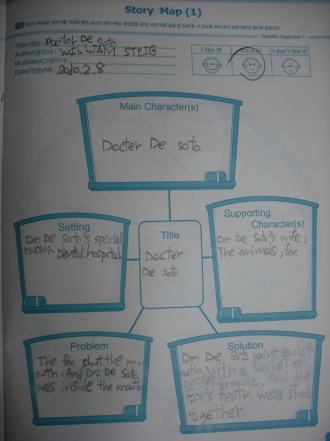 Story Map (1)
Graphic Organizer 1
Title(제목) Doctor De Soto
Author(글작가) WILLIAM STEIG
Illustrator(그림작가)
Date(작성일) 2020.2.8
I like it!
I don't like it!
Main Character(s)
Docter De soto
Setting
Dr. De Soto's special
room Dental hospital
Title
Docter
De soto
Supporting
Character(s)
Dr. De soto's wife,
The animals, fox
Problem
The fox shut the mo-
uth. And Dr. De Soto
was inside the mouth
Solution
Dr. De Soto paint
with a bucket of
secret formula. And the
fox's teeth were stuck
together.